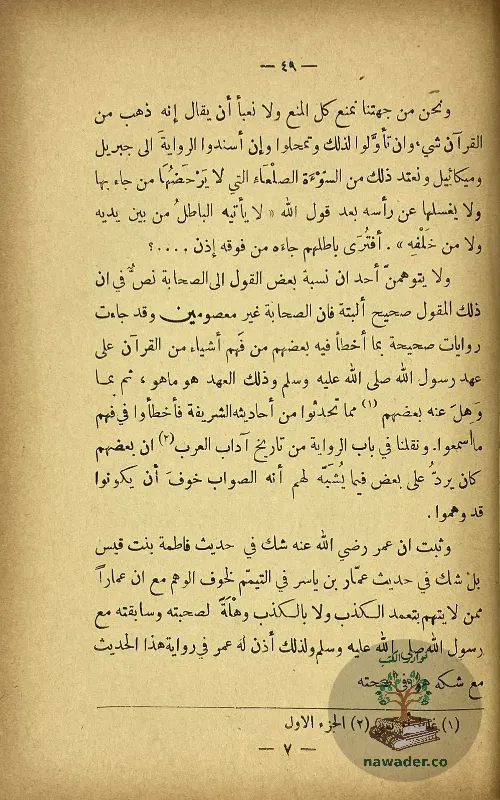 — ٤٩ —
ونحن من جهتنا نمنع كل المنع ولا نعبأ أن يقال إنه ذهب من
القرآن شيء، وان تأوَّلوا لذلك وتمحلوا وإن أسندوا الرواية الى جبريل
وميكائيل ونعتد ذلك من السَّوْءَة الصلْعَاء التي لا يَرْحَضُهَا من جاء بها
ولا يغسلها عن رأسه بعد قول الله « لا يأتيه الباطلُ من بين يديه
ولا من خَلْفِهِ » . أفتُرَى باطلهم جاءه من فوقه إذن . . . . ؟
ولا يتوهمنّ أحد ان نسبة بعض القول الى الصحابة نصٌّ في ان
ذلك المقول صحيح ألبتة فان الصحابة غير معصومين وقد جاءت
روايات صحيحة بما أخطأ فيه بعضهم من فَهم أشياء من القرآن على
عهد رسول الله صلى الله عليه وسلم وذلك العهد هو ماهو ، ثم بما
وَهِلَ عنه بعضهم (١) مما تحدثوا من أحاديثه الشريفة فأخطأوا في فهم
ما سمعوا. ونقلنا في باب الرواية من تاريخ آداب العرب (٢) ان بعضهم
كان يردُّ على بعض فيما يُشَبَّه لهم أنه الصواب خوفَ أن يكونوا
قد وهموا .
وثبت ان عمر رضي الله عنه شك في حديث فاطمة بنت قيس
بل شك في حديث عمَّار بن ياسر في التيمّم لخوف الوهم مع ان عماراً
ممن لا يتهم بتعمد الكذب ولا بالكذب وهْلَةً لصحبته وسابقته مع
رسول الله صلى الله عليه وسلم ولذلك أذن له عمر في رواية هذا الحديث
مع شكه في صحته
(١) (٢) الجزء الاول
— ٧ —
نوادر الكتب
nawader.co